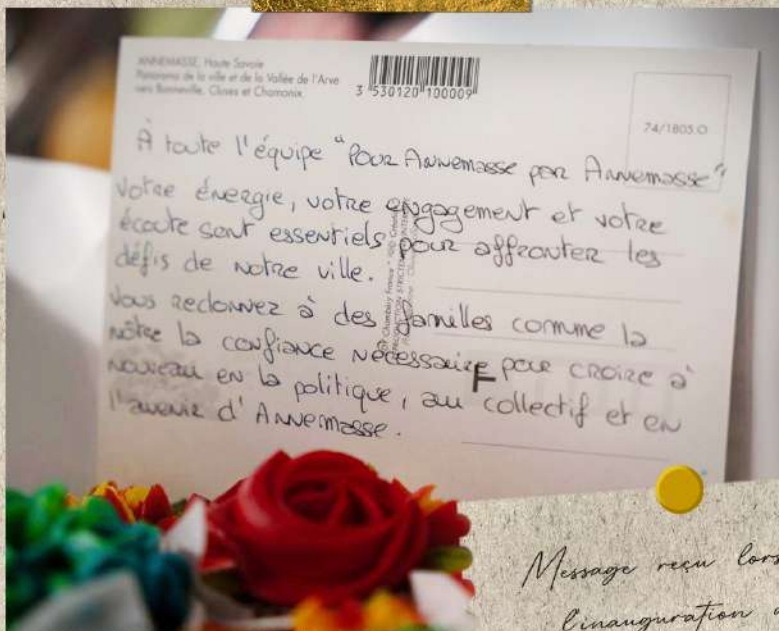 ANNEMASSE, Haute Savoie
Panorama de la ville et de la Vallée de l'Arve
vers Bonneville, Cluses et Chamonix
3 530120 100009
74/1803.O
À toute l'équipe "Pour Annemasse par Annemasse"
Votre énergie, votre engagement et votre
écoute sont essentiels pour affronter les
défis de notre ville.
Vous redonnez à des familles comme la
nôtre la confiance nécessaire pour croire à
nouveau en la politique, au collectif et en
l'avenir d'Annemasse.
Message reçu lors
l'inauguration